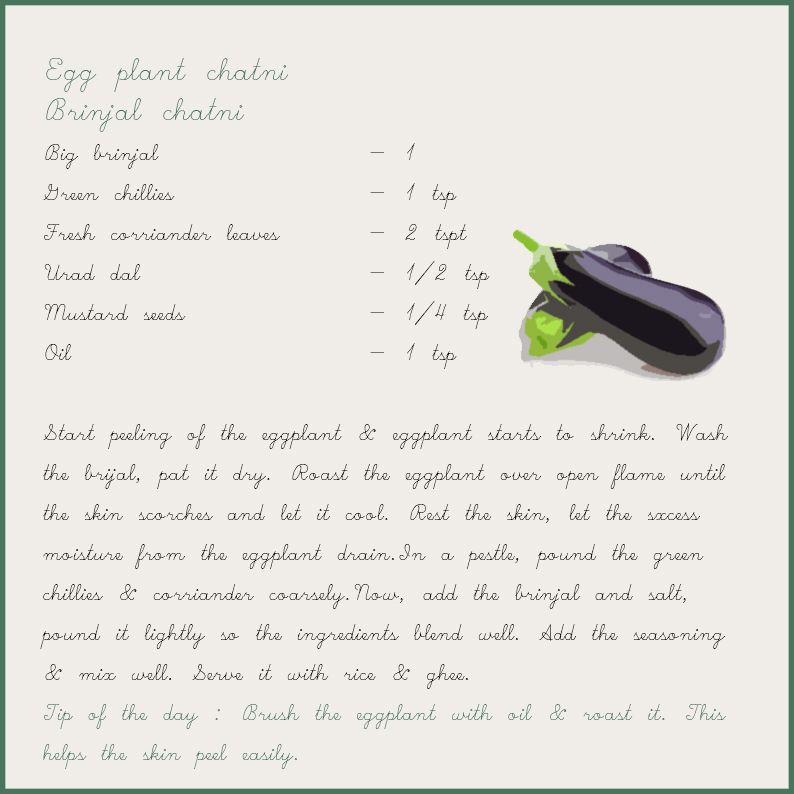 Egg plant chatni
Brinjal chatni
Big brinjal - 1
Green chillies - 1 tsp
Fresh corriander leaves - 2 tspt
Urad dal - 1/2 tsp
Mustard seeds - 1/4 tsp
Oil - 1 tsp
Start peeling of the eggplant & eggplant starts to shrink. Wash
the brijal, pat it dry. Roast the eggplant over open flame until
the skin scorches and let it cool. Rest the skin, let the sxcess
moisture from the eggplant drain.In a pestle, pound the green
chillies & corriander coarsely.Now, add the brinjal and salt,
pound it lightly so the ingredients blend well. Add the seasoning
& mix well. Serve it with rice & ghee.
Tip of the day : Brush the eggplant with oil & roast it. This
helps the skin peel easily.